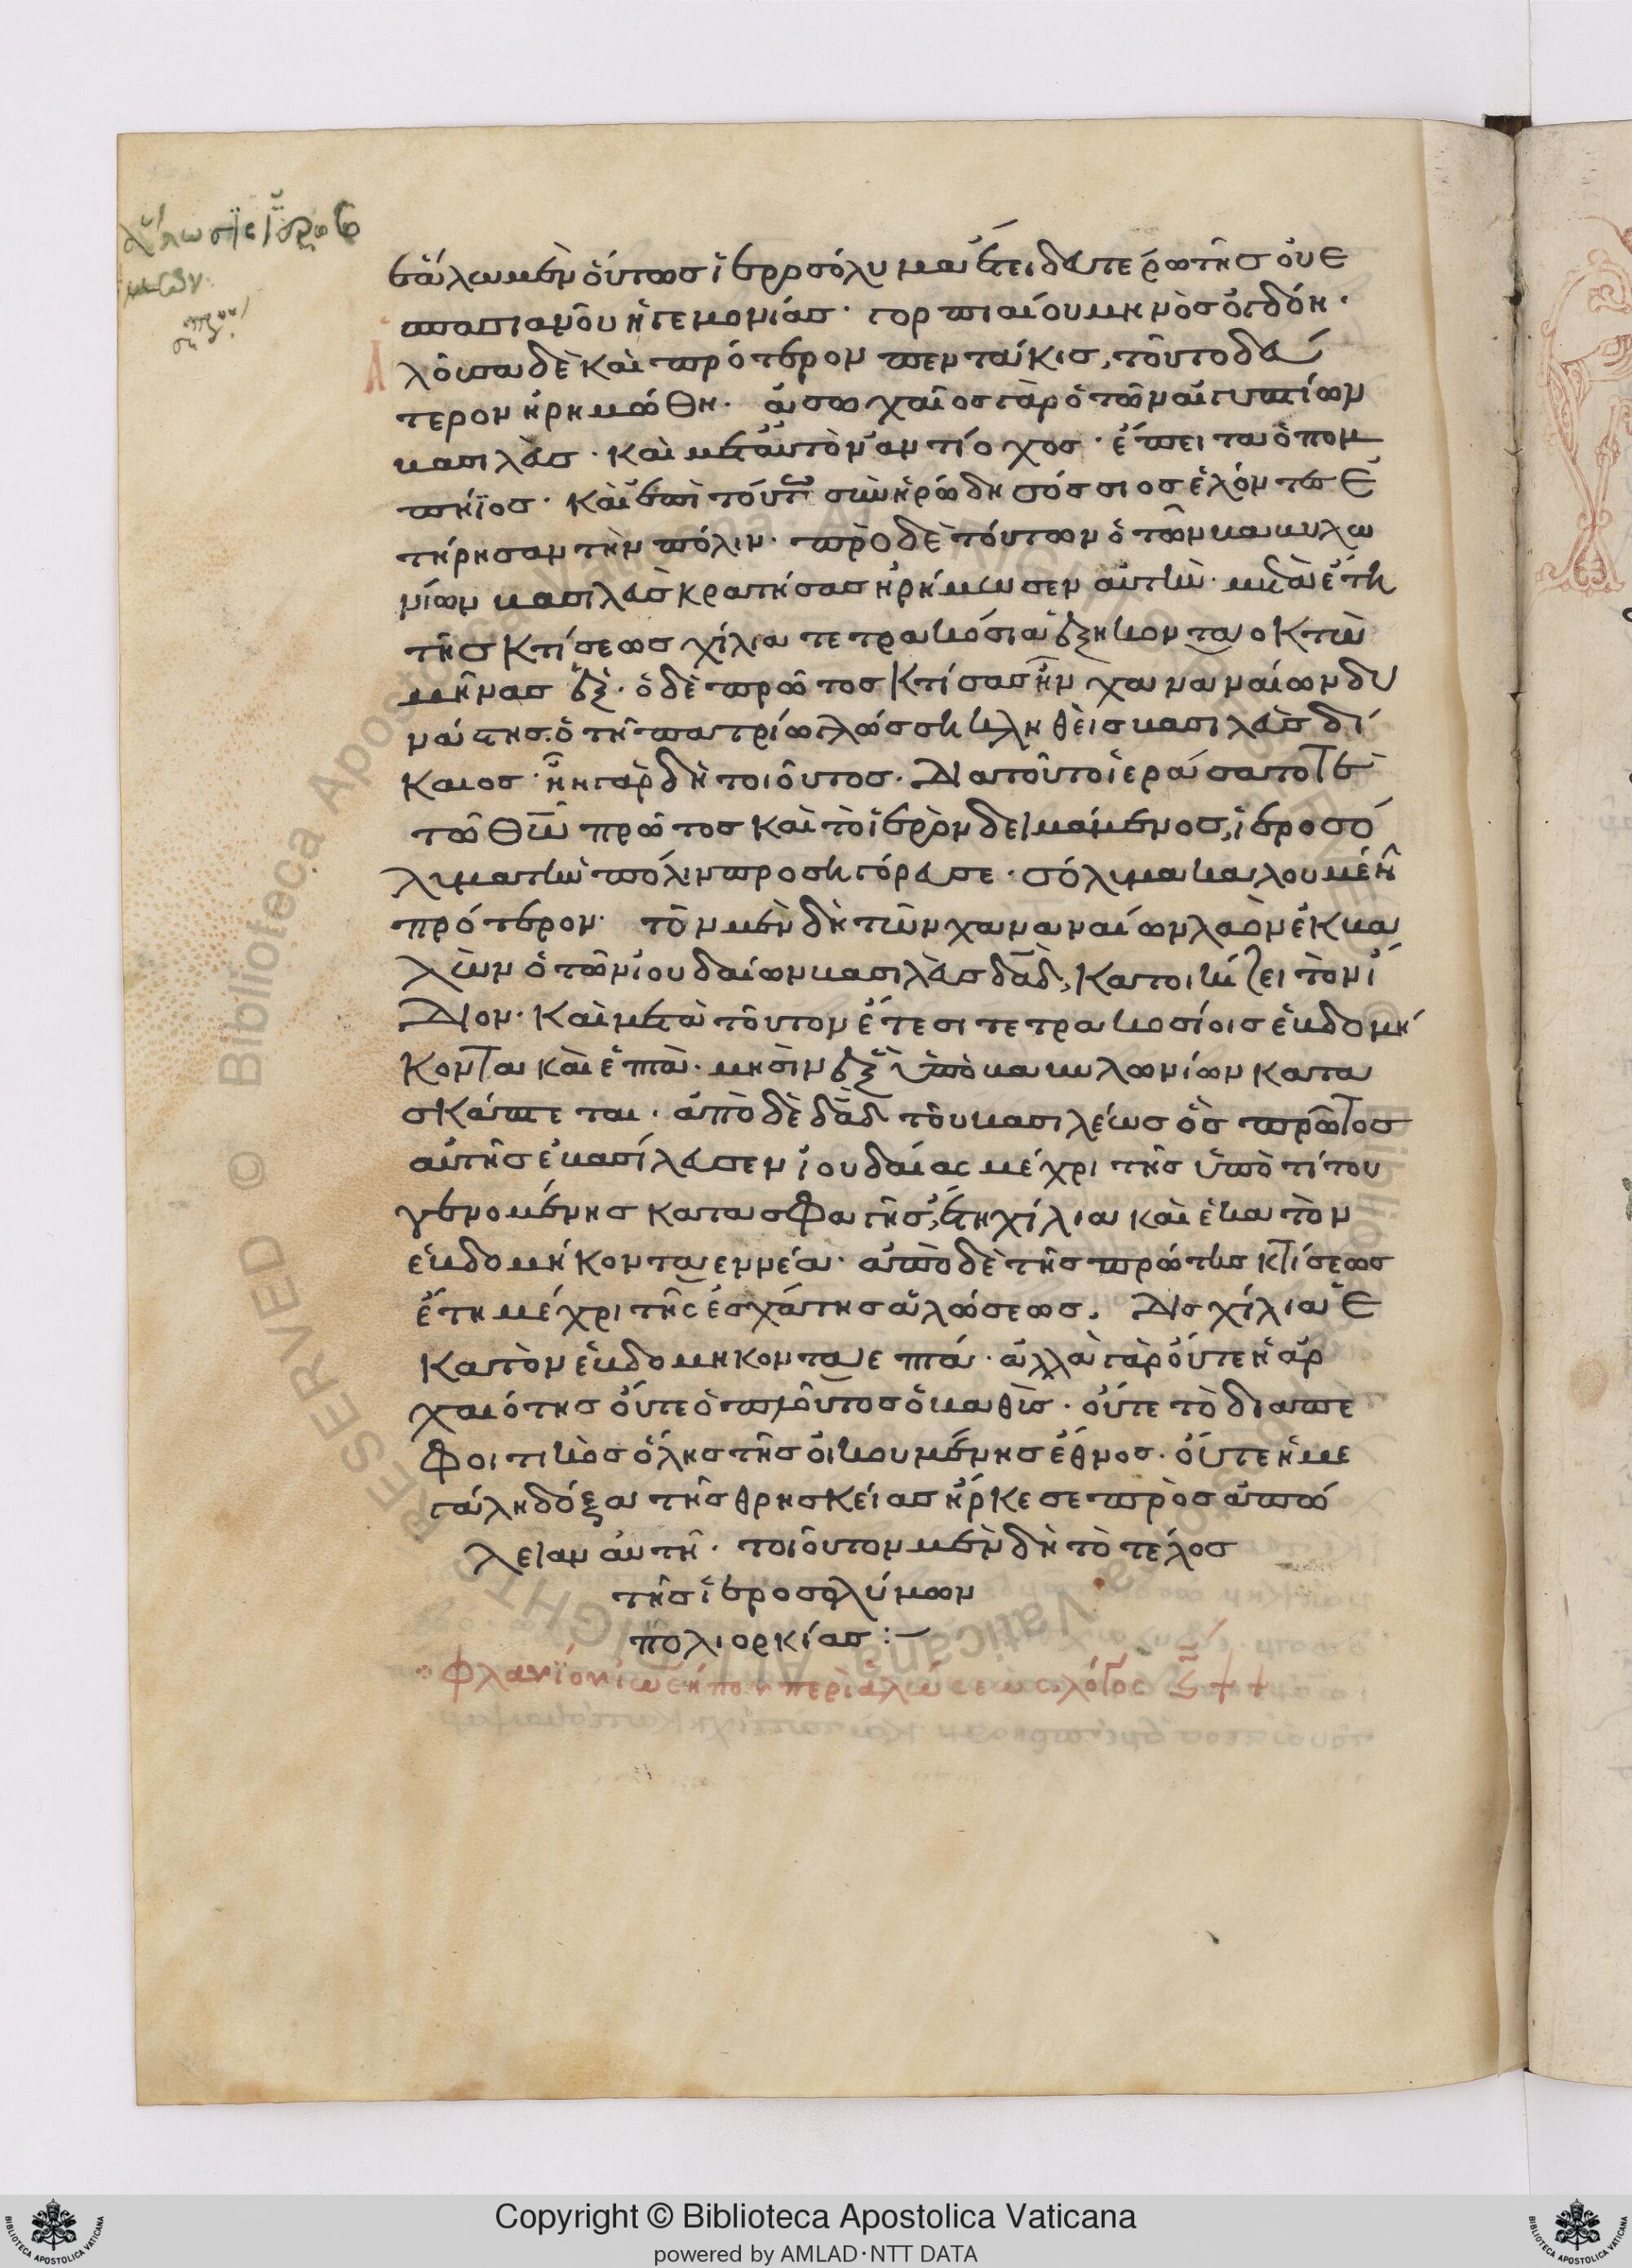 ἑάλω μὲν οὕτως ἱεροσόλυμα ἔτει δευτέρω τῆς οὐε
σπασιανοῦ ἡγεμονίας· γορπιαίου μηνὸς ὀγδόη·
Ἁλοῦσα δὲ καὶ πρότερον πεντάκις, τοῦτο δεύ
τερον ἠρημώθη· ἀσωχαῖος γὰρ ὁ τῶν αἰγυπτίων
βασιλεὺς· καὶ μετ' αὐτὸν ἀντίοχος· ἔπειτα ὁ πομ
πήϊος· καὶ ἐπὶ τούτοις σὺν ἡρώδη σόσσιος ἑλόντες ἐ
τήρησαν τὴν πόλιν· πρὸ δὲ τούτων ὁ τῶν βαβυλω
νίων βασιλεὺς κρατήσας ἠρήμωσεν αὐτὴν· μετὰ ἔτη
τῆς κτίσεως χίλια τετρακόσια ἑξήκονταοκτὼ
μῆνας ἕξ· ὁ δὲ πρῶτος κτίσας ἦν χαναναίων δυ
νάστης. ὁ τῆ πατρίω γλώσση κληθεὶς βασιλεὺς δί
καιος· ἦν γὰρ δὴ τοιοῦτος. διατοῦτο ἱεράσατό τε
τῶ θῶ πρῶτος καὶ τὸ ἱερὸν δειμάμενος, ἱεροσό
λυμα τὴν πόλιν προσηγόρευσε· σόλυμα καλουμένην
πρότερον· τὸν μὲν δὴ τῶν χαναναίων λαὸν ἐκβα
λὼν ὁ τῶν ἰουδαίων βασιλεὺς δαδ, κατοικίζει τὸν ἴ
διον· καὶ μετὰ τοῦτον ἔτεσι τετρακοσίοις ἑβδομή
κοντα καὶ ἑπτὰ· μησὶν ἓξ ὑπὸ βαβυλωνίων κατα
σκάπτεται· ἀπὸ δὲ δαδ τοῦ βασιλέως ὃς πρῶτος
αὐτῆς ἐβασίλευσεν ἰουδαίας μέχρι τῆς ὑπὸ τίτου
γενομένης κατασκαφῆς, ἔτη χίλια καὶ ἑκατὸν
ἑβδομήκονταεννέα· ἀπὸ δὲ τῆς πρώτης κτίσεως
ἔτη μέχρι τῆς ἐσχάτης ἁλώσεως. δισχίλια ἑ
κατὸν ἑβδομηκονταεπτά· ἀλλὰ γὰρ οὔτε ἡ ἀρ
χαιότης οὔτε ὁ πλοῦτος ὁ βαθὺς· οὔτε τὸ διαπε
φοιτηκὸς ὅλης τῆς οἰκουμένης ἔθνος· οὔτε ἡ με
γάλη δόξα τῆς θρησκείας ἤρκεσε πρὸς ἀπώ
λειαν αὐτῆ· τοιοῦτον μὲν δὴ τὸ τέλος
τῆς ἱεροσολύμων
πολιορκίας :—
φλαυΐου ἰωσήπου περὶ ἁλώσεως λόγος